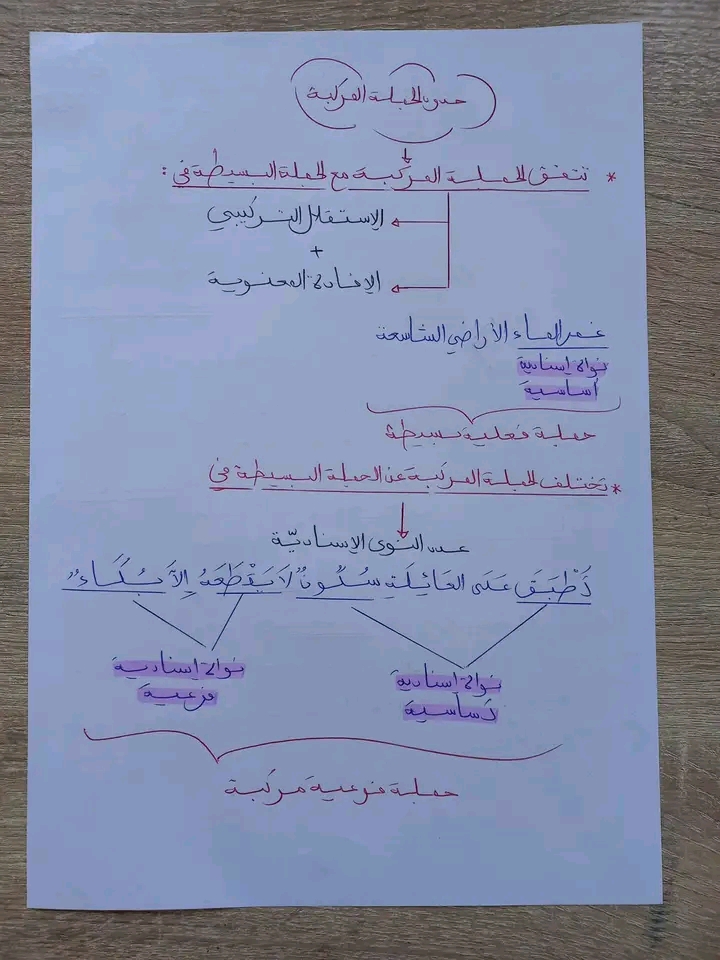 حدود الجملة المركبة
* تتفق الجملة المركبة مع الجملة البسيطة في :
الاستقلال التركيبي
+
الإفادة المعنوية
غمر الماء الأراضي الشاسعة
نواة إسنادية
أساسية
جملة فعلية بسيطة
* تختلف الجملة المركبة عن الجملة البسيطة في
عدد النوى الإسناديّة
أَطْبَقَ عَلَى العَائِلَةِ سُكُونٌ لَا يَقْطَعُهُ إِلَّا بُكَاءٌ
نواة إسنادية
أساسية
نواة إسنادية
فرعية
جملة فرعية مركبة